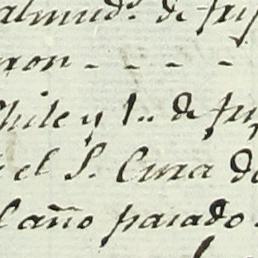 almud.s de frij
ron - - - -
Chile y 1.. de fri
el S. Cura de
l año pasado